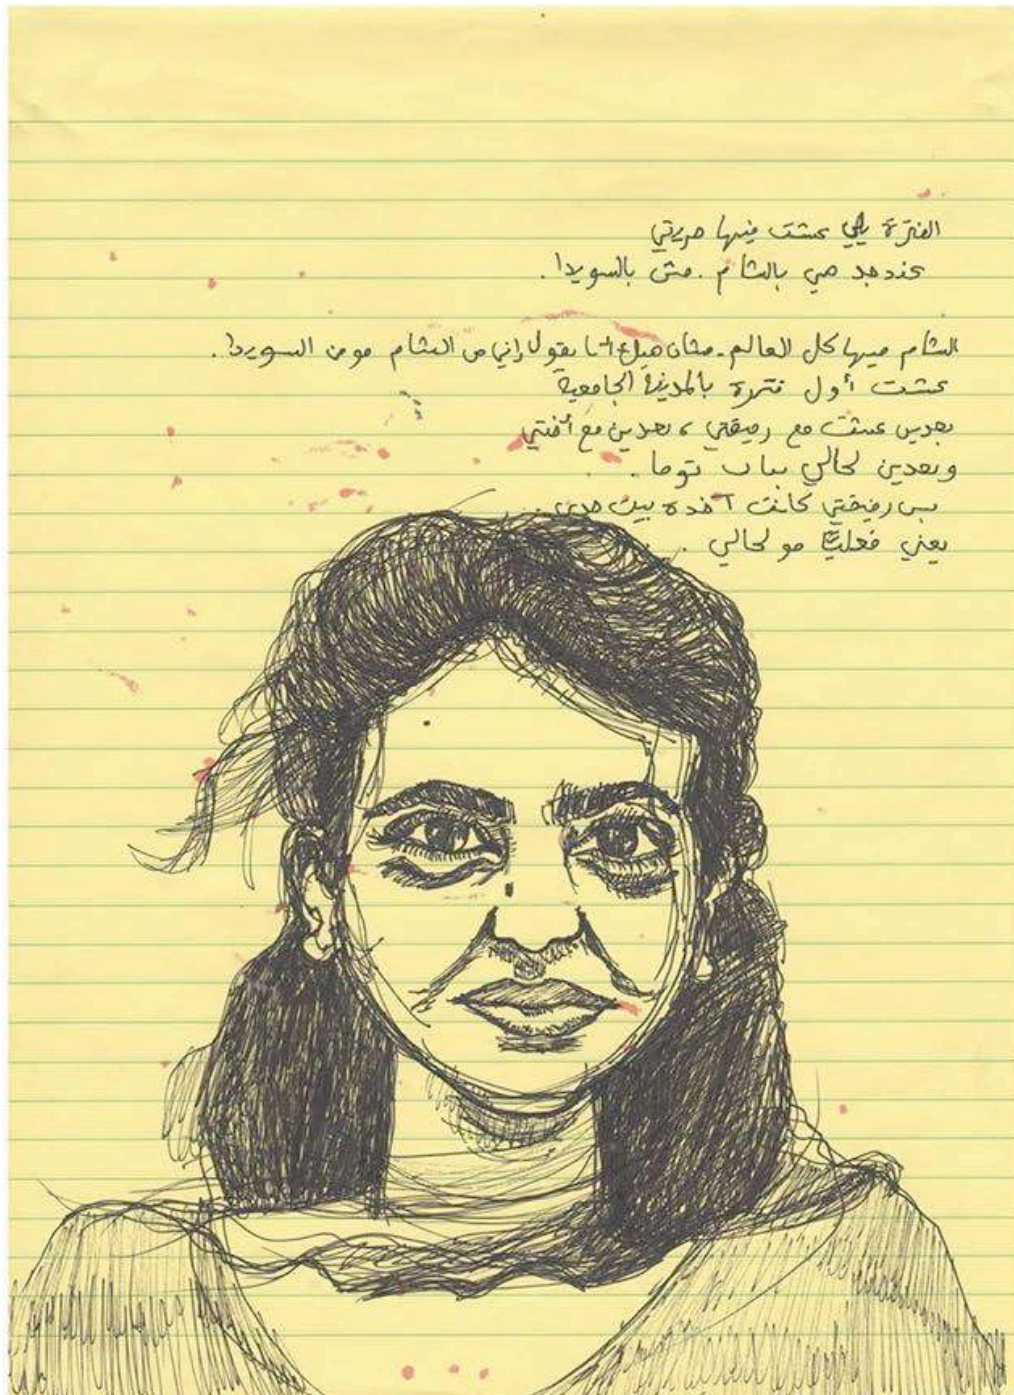 الفترة يلي عشت فيها حريتي
عندجد هي بالشام . مش بالسويدا .
الشام فيها كل العالم . مشان هيك أنا بقول إني من الشام مو من السويدا .
عشت أول فترة بالمدينة الجامعية
بعدين عشت مع رفيقتي ، بعدين مع أختي
وبعدين لحالي بباب توما .
بس رفيقتي كانت آخدة بيت حدي ...
يعني فعلياً مو لحالي .